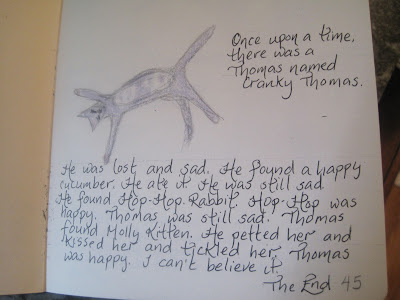 Once upon a time,
there was a
Thomas named
Cranky Thomas.
He was lost and sad. He found a happy
cucumber. He ate it. He was still sad.
He found Hop-Hop Rabbit. Hop-Hop was
happy. Thomas was still sad. Thomas
found Molly Kitten. He petted her and
kissed her and tickled her. Thomas
was happy. I can't believe it.
The End 45